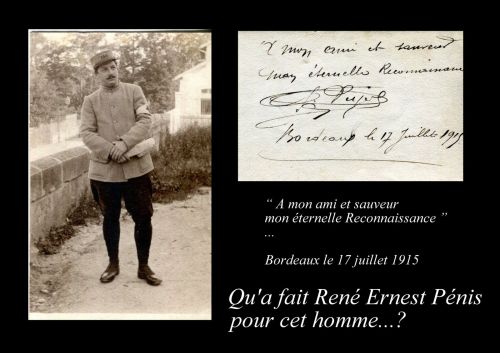 A mon ami et sauveur
mon éternelle Reconnaissance
Bordeaux le 17 Juillet 1915
“ A mon ami et sauveur
mon éternelle Reconnaissance ”
...
Bordeaux le 17 juillet 1915
Qu'a fait René Ernest Pénis
pour cet homme...?